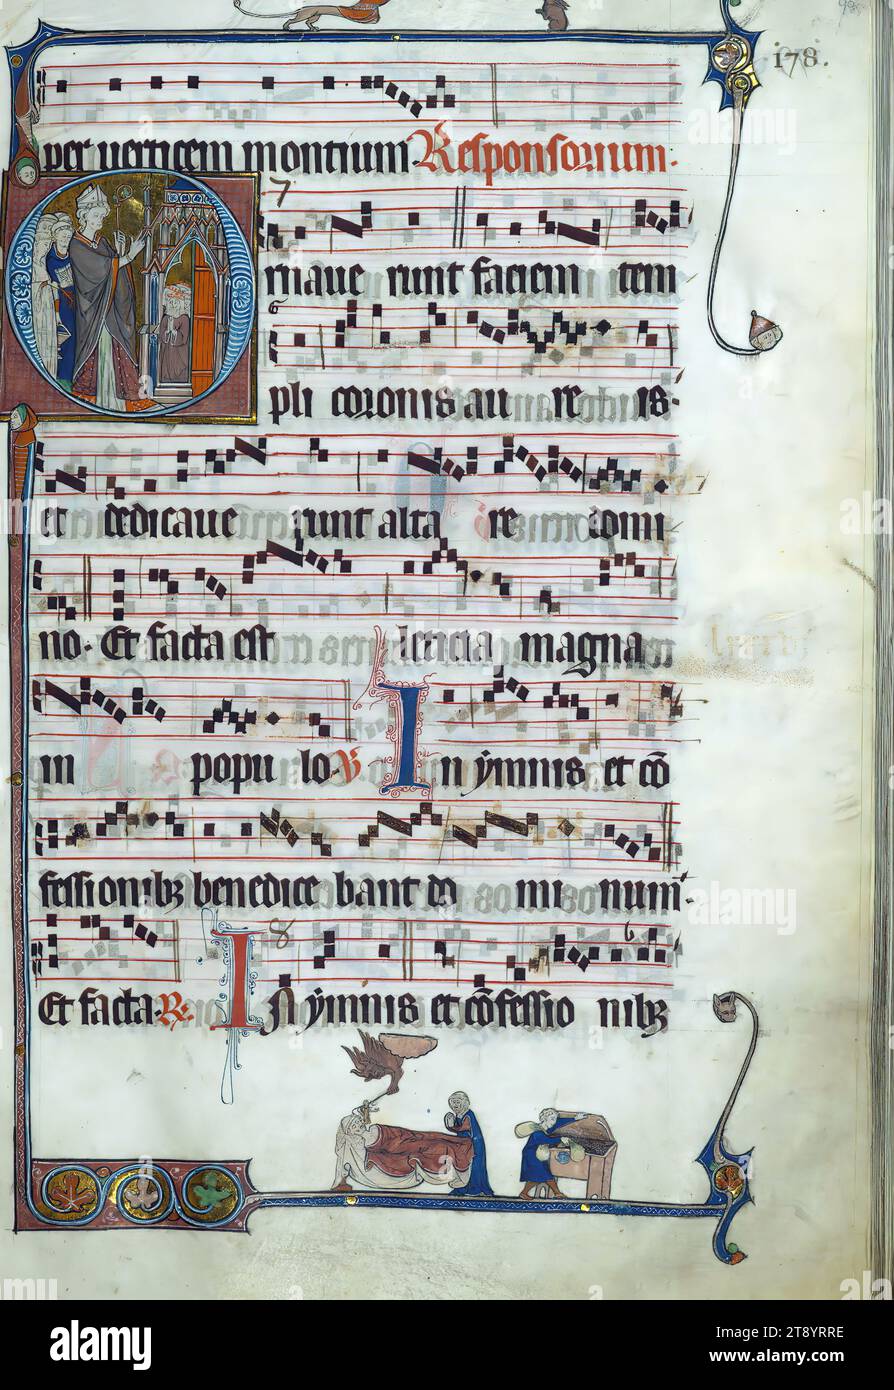 178.
per verticem montium Responsorium.
7
rnave runt faciem tem
6
pli coronis au re is.
et dedicave runt alta re domi
no. Et facta est leticia magna
in popu lo. V In ẏmnis et cō
fessionibꝫ benedice bant do mi num.
8
Et facta. R. IN ẏmnis et cōfessio nibꝫ
alamy
Image ID: 2T8YRRE
www.alamy.com